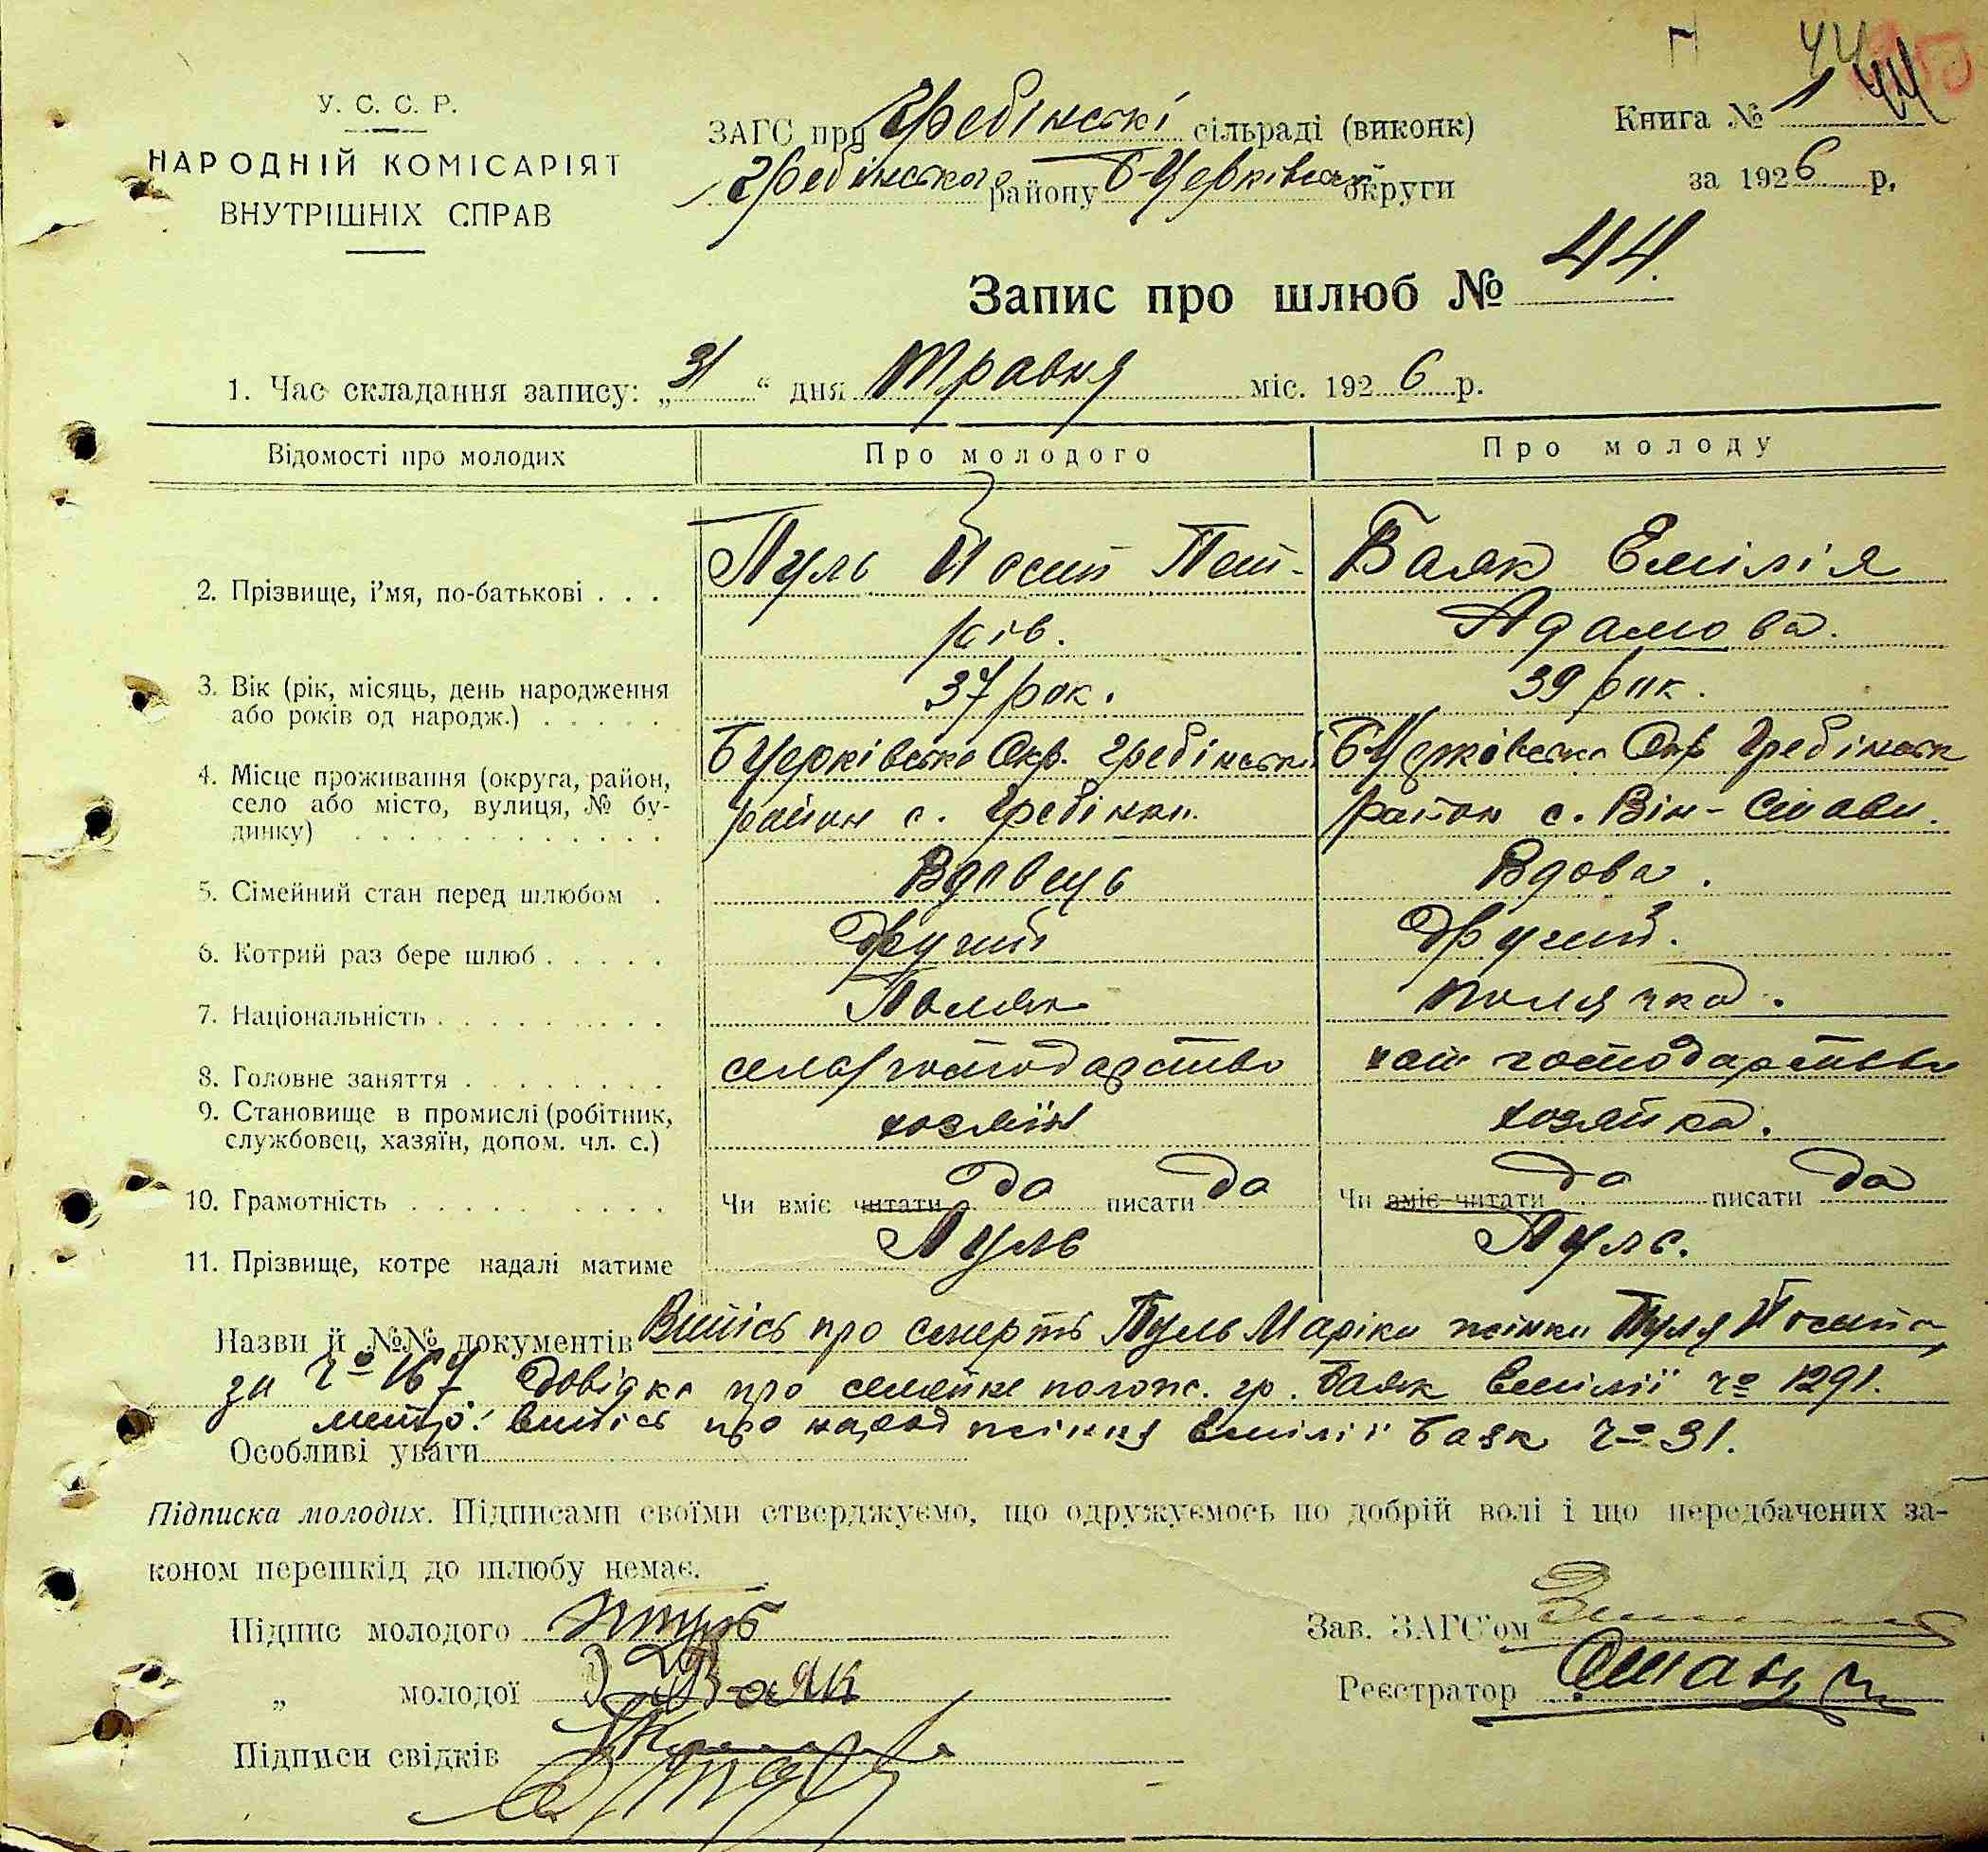 44
У. С. С. Р.
НАРОДНІЙ КОМІСАРІЯТ
ВНУТРІШНІХ СПРАВ
ЗАГС при Гребінскі сільраді (виконк)
Гребінського району Б-Церківськ округи
Книга № 1
за 1926 р.
Запис про шлюб № 44.
1. Час складання запису: „31“ дня травня міс. 1926 р.
Відомості про молодих Про молодого Про молоду
2. Прізвище, і'мя, по-батькові . . . Пуль Йосип Пет- Баяк Емілія
ків. Адамова.
3. Вік (рік, місяць, день народження
або років од народж.) . . . . . 37 рок. 39 рок.
4. Місце проживання (округа, район,
село або місто, вулиця, № бу-
динку) . . . . . . . . . . . .
БЦерківська Окр. Гребінськ
район с. Гребінки.
Б-Церківська Окр Гребінськ
район с. Він-Стави.
5. Сімейний стан перед шлюбом . Вдовець Вдова.
6. Котрий раз бере шлюб . . . . . Другий Другий.
7. Національність . . . . . . . . . Поляк полячка.
8. Головне заняття . . . . . . . . господарство господарство
9. Становище в промислі (робітник,
службовец, хазяїн, допом. чл. с.) хозяїн хозяйка.
10. Грамотність . . . . . . . . . Чи вміє читати да писати да Чи вміє читати да писати да
11. Прізвище, котре надалі матиме Пуль Пуль.
Назви й №№ документів Випісь про смерть Пуль Маріки жінки Пуля Йосипа
за чо 167 Довідка про семейне полож. гр. Баяк Емілії чо 1291.
метр. випісь про народ жіння Емілії Баяк чо 31.
Особливі уваги
Підписка молодих. Підписами своїми стверджуємо, що одружуємось по добрій волі і що передбачених за-
коном перешкід до шлюбу немає.
Підпис молодого
„ молодої Баяк
Підписи свідків
Зав. ЗАГС'ом
Реєстратор